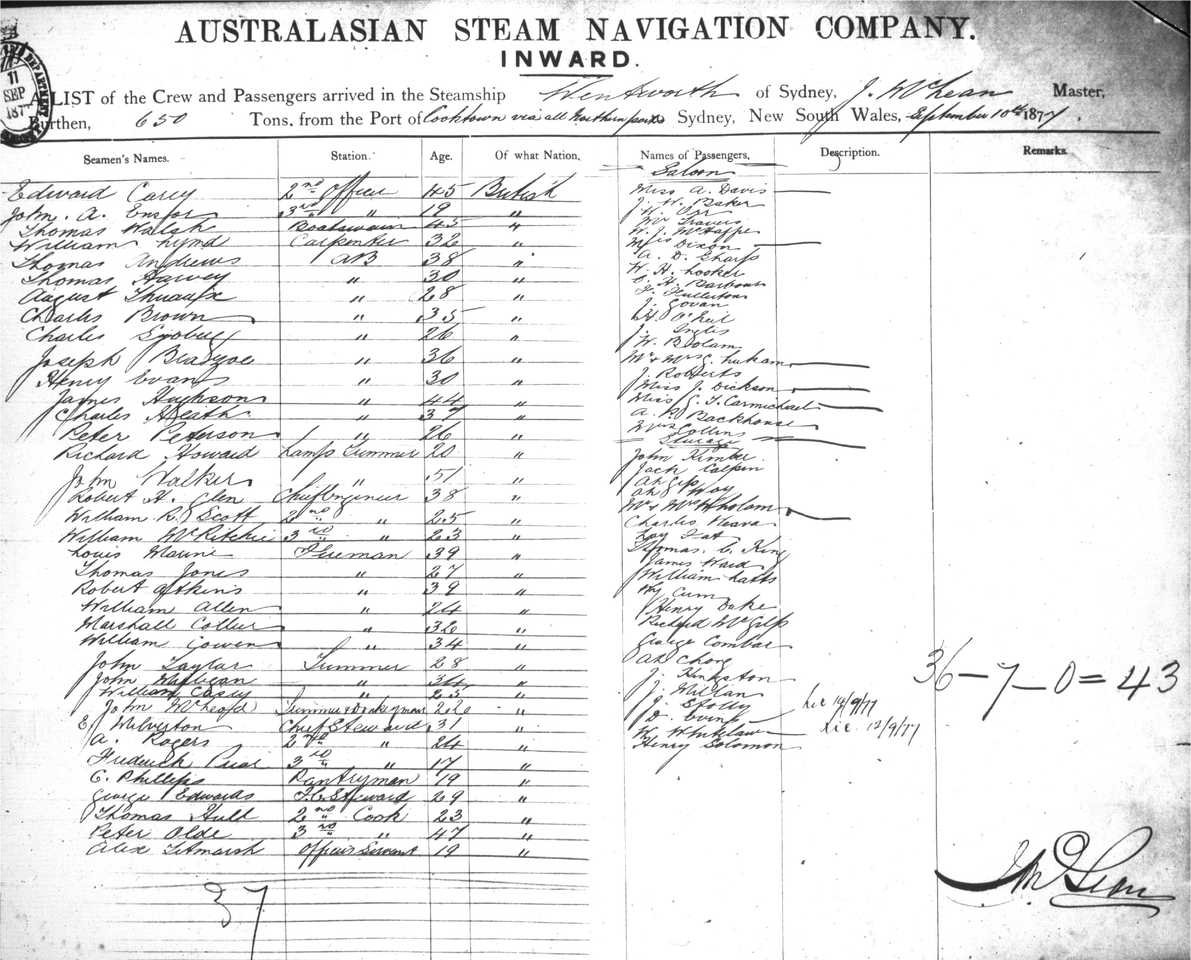 AUSTRALASIAN STEAM NAVIGATION COMPANY.
INWARD.
11
SEP
187
A LIST of the Crew and Passengers arrived in the Steamship Wentworth of Sydney, J. McLean Master,
Burthen, 650 Tons. from the Port of Cooktown via all Northern ports Sydney, New South Wales, September 10th 1877.
Seamen's Names. Station. Age. Of what Nation. Names of Passengers. Description. Remarks.
Edward Carey 2nd Officer 45 British
John. A. Ensfor 3rd " 19 "
Thomas Walsh Boatswain 45 "
William Lynd Carpenter 32 "
Thomas Andrews AB 38 "
Thomas Harvey " 30 "
August " 28 "
Charles Brown " 35 "
Charles " 26 "
Joseph " 36 "
Henry Evans " 30 "
James " 44 "
Charles Heath " 37 "
Peter Peterson " 26 "
Richard Howard Lamp Trimmer 20 "
John Walker " 51 "
Robert H. Glen Chief Engineer 38 "
William R. Scott 2nd " 25 "
William McRitchie 3rd " 23 "
Louis Fireman 39 "
Thomas Jones " 27 "
Robert Atkins " 39 "
William Allen " 24 "
Marshall Collier " 32 "
William Gowen " 34 "
John Taylar Trimmer 28 "
John " 34 "
William Casey " 25 "
John McLeod Trimmer & Donkeyman 22 "
E. Chief Steward 31 "
A. Rogers 2nd " 24 "
Fredrick 3rd " 17 "
C. Phillips Pantryman 19 "
George Edwards F.C. Steward 29 "
Thomas Hull 2nd Cook 23 "
Peter Olde 3rd " 47 "
Alex Titmarsh Officers Servant 19 "
37
Saloon
Miss A. Davis
J. W. Baker
W. Orr
Mr Travers
W. J.
Dixon
A. D. Sharp
W. H. Looker
Barbour
Fullerton
J. Govan
H. O'Neil
J. Inglis
W.
Mr & Mrs
J. Roberts
Miss J. Dickson
Miss C. F. Carmichael
A. Backhouse
Mrs Collins
Steerage
John Kimber
Jack
Ah Gip
Ah Way
Mr & Mrs
Charles
Lay Fat
Thomas. C. King
James Ward
William
Cum
Henry Dake
Richard
George Combar
Ah Chong
J.
J.
J.
D. Evans
Wm Whitelaw
Henry Solomon
12/9/77
12/9/77
36-7-0=43
J McLean